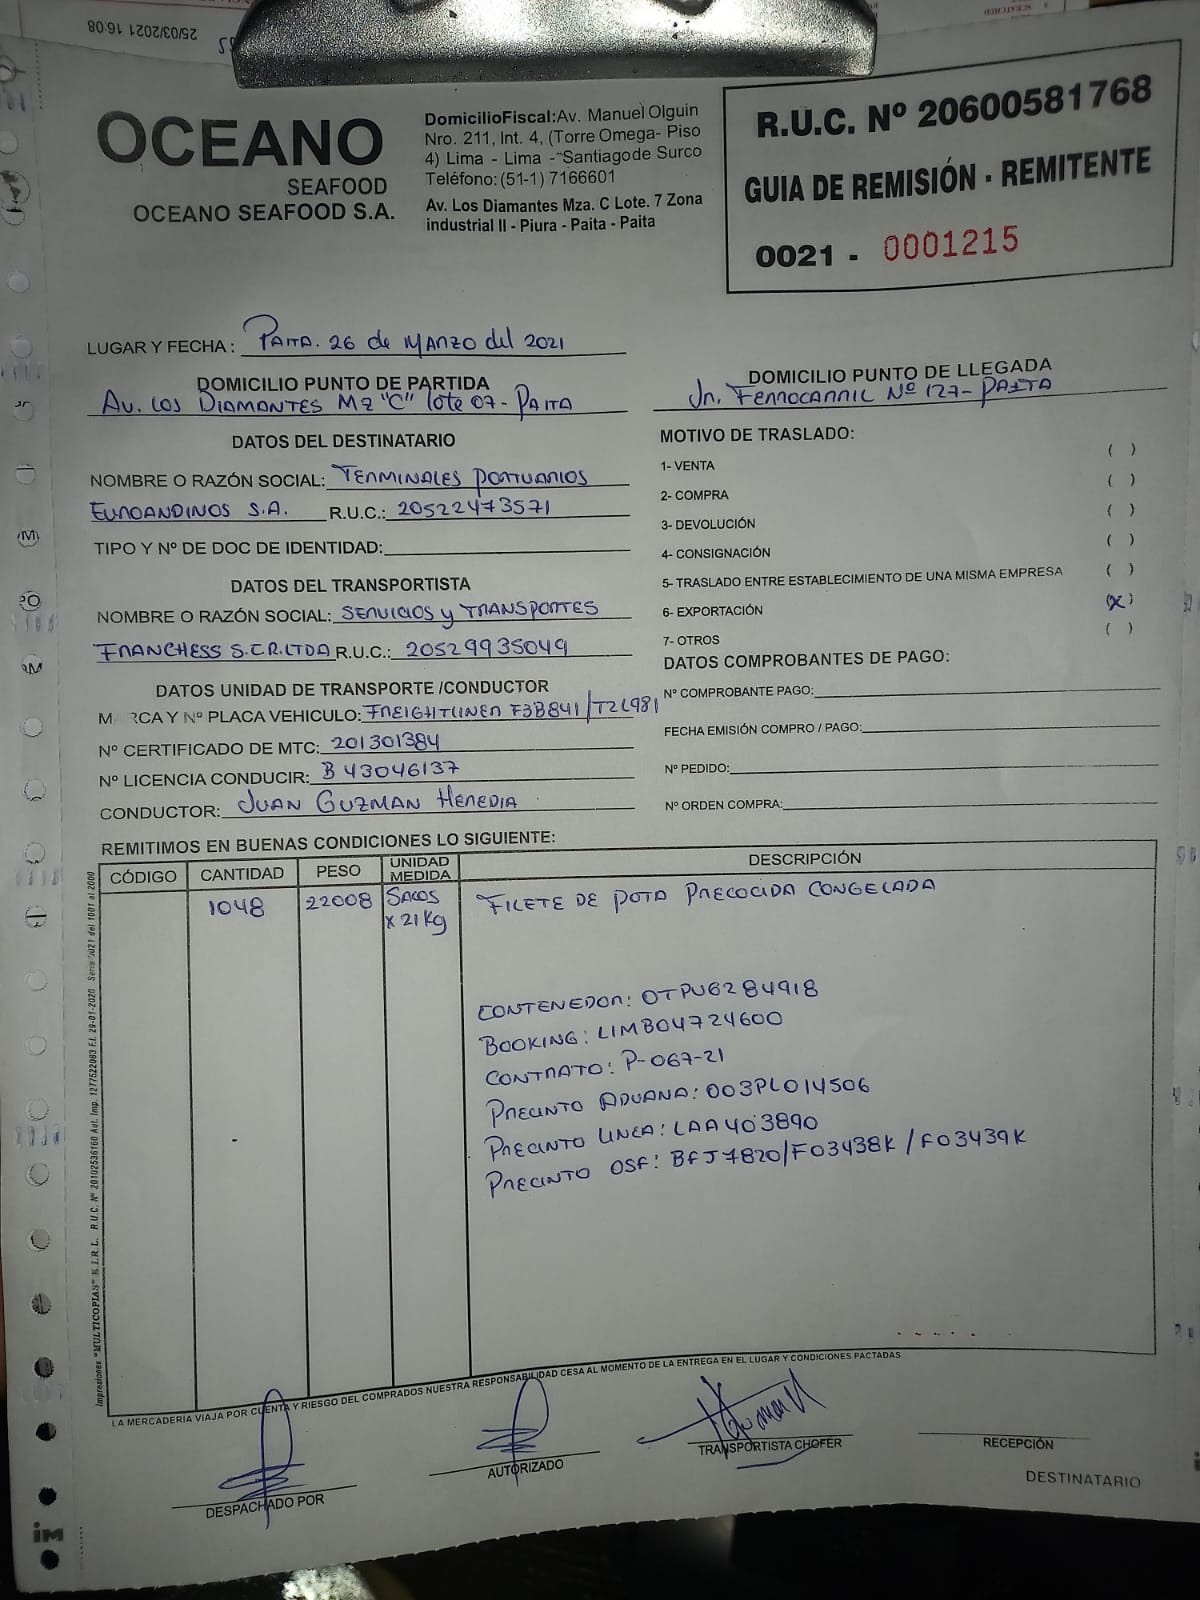 25/03/2021 16:08
OCEANO
SEAFOOD
OCEANO SEAFOOD S.A.
DomicilioFiscal:Av. Manuel Olguin
Nro. 211, Int. 4, (Torre Omega- Piso
4) Lima - Lima - Santiagode Surco
Teléfono: (51-1) 7166601
Av. Los Diamantes Mza. C Lote. 7 Zona
industrial II - Piura - Paita - Paita
R.U.C. Nº 20600581768
GUIA DE REMISIÓN - REMITENTE
0021 - 0001215
LUGAR Y FECHA : PAITA. 26 de MARZO del 2021
DOMICILIO PUNTO DE PARTIDA
AV. LOS DIAMANTES MZ "C" lote 07- PAITA
DOMICILIO PUNTO DE LLEGADA
Jn. FERROCARRIL Nº 127- PAITA
DATOS DEL DESTINATARIO
NOMBRE O RAZÓN SOCIAL: TERMINALES PORTUARIOS
EUROANDINOS S.A. R.U.C.: 20522473571
TIPO Y Nº DE DOC DE IDENTIDAD:
DATOS DEL TRANSPORTISTA
NOMBRE O RAZÓN SOCIAL: SERVICIOS y TRANSPORTES
FRANCHESS S.C.R.LTDA R.U.C.: 20529935049
DATOS UNIDAD DE TRANSPORTE /CONDUCTOR
MARCA Y Nº PLACA VEHICULO: FREIGHTLINER F3B841/T2L981
Nº CERTIFICADO DE MTC: 201301384
Nº LICENCIA CONDUCIR: B 43046137
CONDUCTOR: JUAN GUZMAN HEREDIA
MOTIVO DE TRASLADO:
1- VENTA ( )
2- COMPRA ( )
3- DEVOLUCIÓN ( )
4- CONSIGNACIÓN ( )
5- TRASLADO ENTRE ESTABLECIMIENTO DE UNA MISMA EMPRESA ( )
6- EXPORTACIÓN (X)
7- OTROS ( )
DATOS COMPROBANTES DE PAGO:
Nº COMPROBANTE PAGO:
FECHA EMISIÓN COMPRO / PAGO:
Nº PEDIDO:
Nº ORDEN COMPRA:
REMITIMOS EN BUENAS CONDICIONES LO SIGUIENTE:
CÓDIGO CANTIDAD PESO UNIDAD MEDIDA DESCRIPCIÓN
1048 22008 SACOS X 21 Kg FILETE DE POTA PRECOCIDA CONGELADA
CONTENEDOR: OTPU6284918
BOOKING: LIMB04724600
CONTRATO: P-067-21
PRECINTO ADUANA: 003PL014506
PRECINTO LINEA: LAA403890
PRECINTO OSF: BFJ7820/F03438K/F03439K
Impresiones "MULTICOPIAS" E.I.R.L. R.U.C. Nº 20102536160 Aut. Imp. 1277522083 F.I. 29-01-2020 Serie 0021 del 1001 al 2000
LA MERCADERIA VIAJA POR CUENTA Y RIESGO DEL COMPRADOS NUESTRA RESPONSABILIDAD CESA AL MOMENTO DE LA ENTREGA EN EL LUGAR Y CONDICIONES PACTADAS
DESPACHADO POR
AUTORIZADO
TRANSPORTISTA CHOFER
RECEPCIÓN
DESTINATARIO